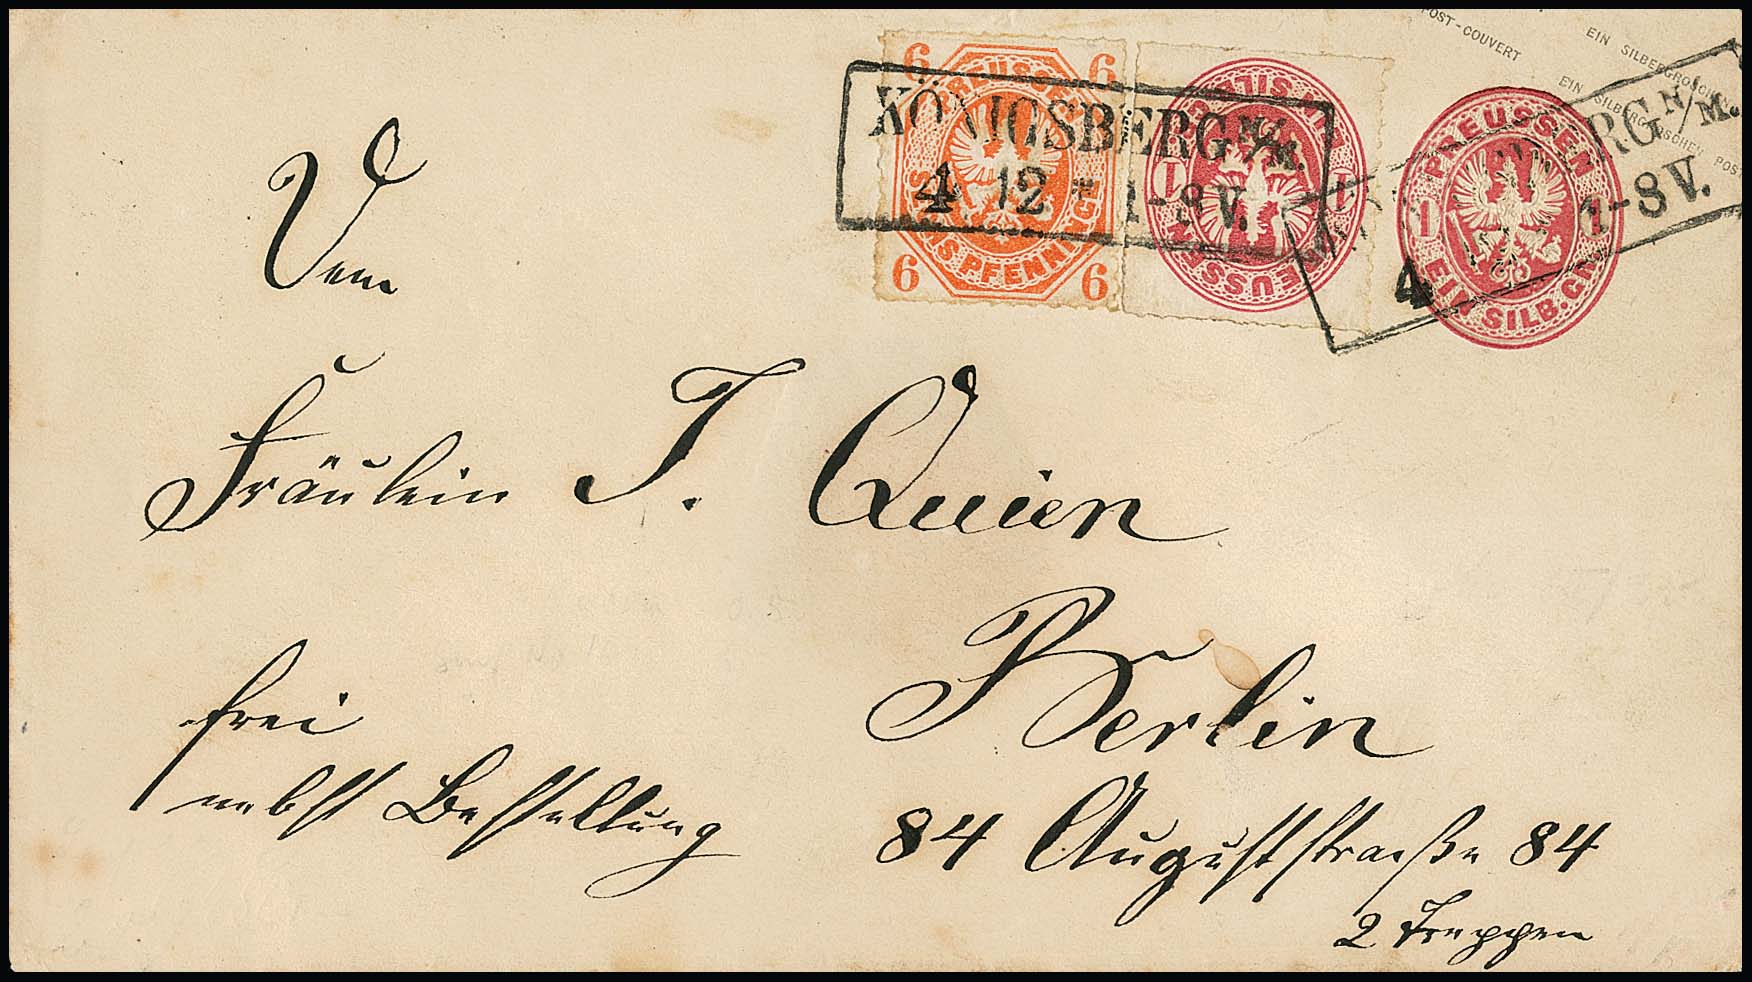 POST-COUVERT
EIN SILBERGROSCHEN
EIN SILBERGROSCHEN POST
6 6
PREUSSEN
SECHS PFENNIGE
6 6
1 1
PREUSSEN
1 1
EIN SILB. GR.
KÖNIGSBERG N/M.
4 12 * 1-8 V.
RG N/M.
4
1-8 V.
Dem
Fräulein J. Quien
Berlin
frei
nebst Bestellung
84 Auguststraße 84
2 Treppen